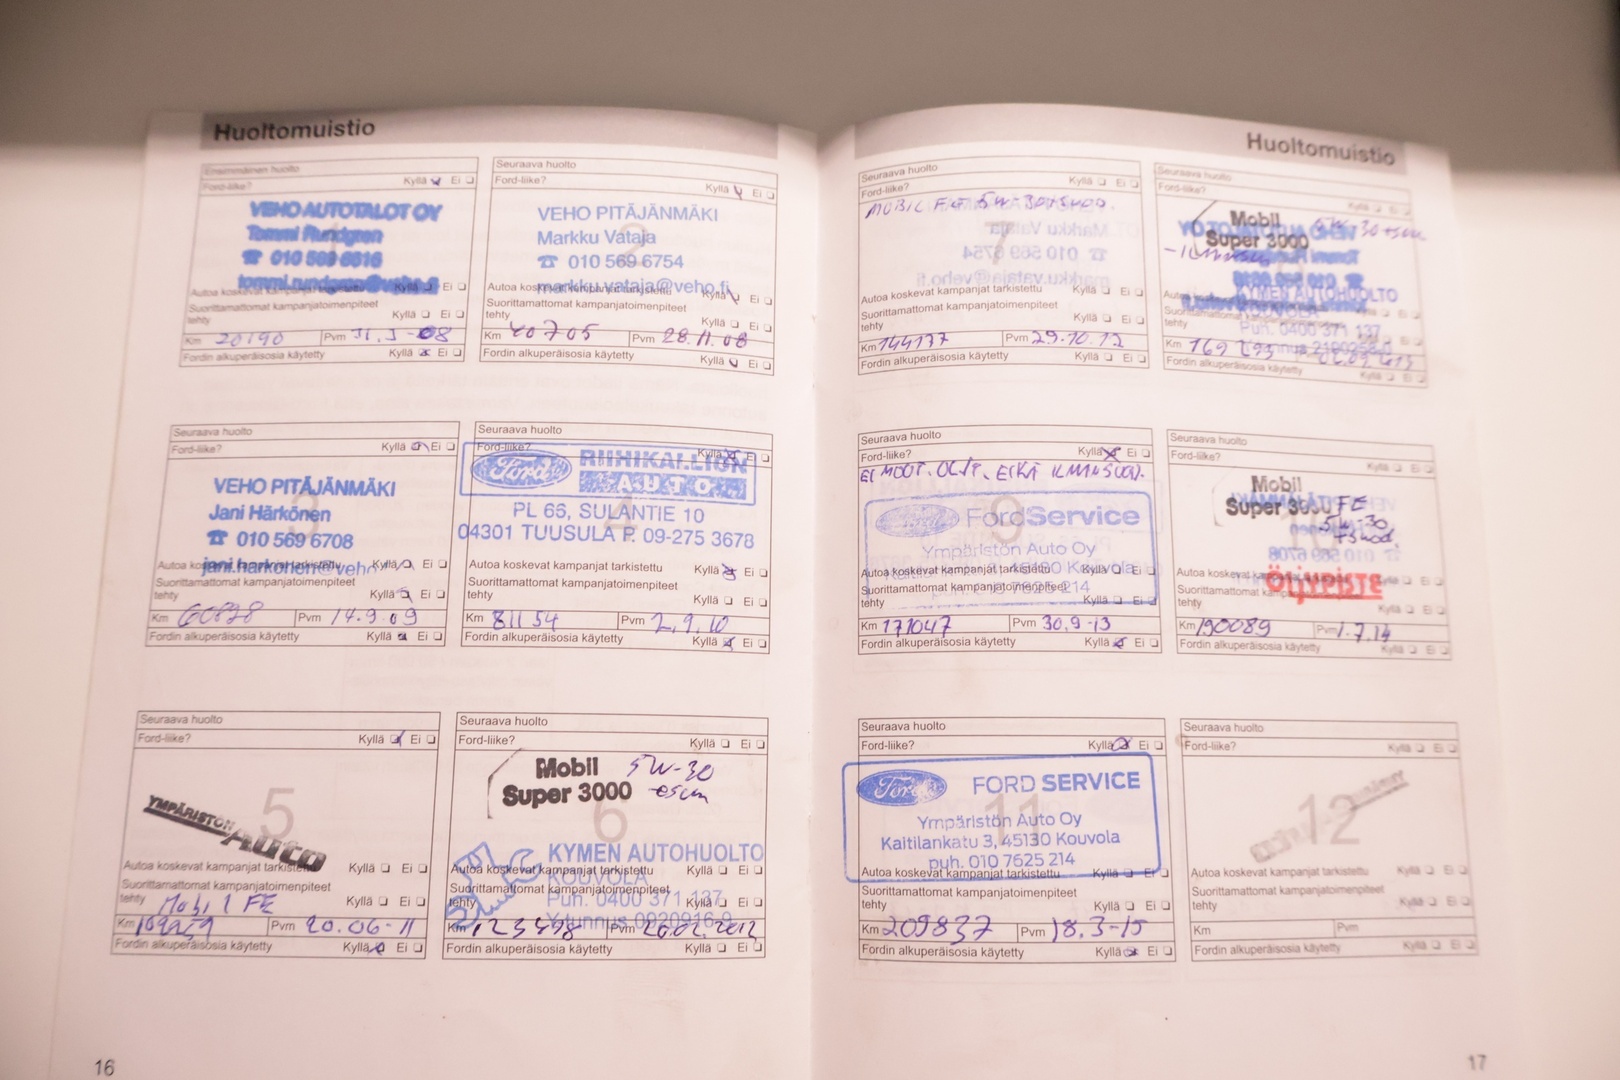 Huoltomuistio
Ensimmäinen huolto
Ford-liike? Kyllä Ei
VEHO AUTOTALOT OY
Tommi Rundgren
☎ 010 569 6616
tommi.rundgren@veho.fi
Autoa koskevat kampanjat tarkistettu Kyllä Ei
Suorittamattomat kampanjatoimenpiteet
tehty Kyllä Ei
Km 20190 Pvm 31.3-08
Fordin alkuperäisosia käytetty Kyllä Ei
Seuraava huolto
Ford-liike? Kyllä Ei
2
VEHO PITÄJÄNMÄKI
Markku Vataja
☎ 010 569 6754
markku.vataja@veho.fi
Autoa koskevat kampanjat tarkistettu Kyllä Ei
Suorittamattomat kampanjatoimenpiteet
tehty Kyllä Ei
Km 40705 Pvm 28.11.08
Fordin alkuperäisosia käytetty Kyllä Ei
Seuraava huolto
Ford-liike? Kyllä Ei
3
VEHO PITÄJÄNMÄKI
Jani Härkönen
☎ 010 569 6708
jani.harkonen@veho
Autoa koskevat kampanjat tarkistettu Kyllä Ei
Suorittamattomat kampanjatoimenpiteet
tehty Kyllä Ei
Km 60898 Pvm 14.9.09
Fordin alkuperäisosia käytetty Kyllä Ei
Seuraava huolto
Ford-liike? Kyllä Ei
4
Ford RIIHIKALLION
AUTO
PL 66, SULANTIE 10
04301 TUUSULA P. 09-275 3678
Autoa koskevat kampanjat tarkistettu Kyllä Ei
Suorittamattomat kampanjatoimenpiteet
tehty Kyllä Ei
Km 81154 Pvm 2.9.10
Fordin alkuperäisosia käytetty Kyllä Ei
Seuraava huolto
Ford-liike? Kyllä Ei
5
YMPÄRISTÖN Auto
Autoa koskevat kampanjat tarkistettu Kyllä Ei
Suorittamattomat kampanjatoimenpiteet
tehty Mobil 1 FE Kyllä Ei
Km Pvm 20.06-11
Fordin alkuperäisosia käytetty Kyllä Ei
Seuraava huolto
Ford-liike? Kyllä Ei
6
Mobil 5W-30
Super 3000
KYMEN AUTOHUOLTO
KOUVOLA
Puh. 0400 371 137
Y-tunnus 0920916-9
Autoa koskevat kampanjat tarkistettu Kyllä Ei
Suorittamattomat kampanjatoimenpiteet
tehty Kyllä Ei
Km 123498 Pvm 20.02.2012
Fordin alkuperäisosia käytetty Kyllä Ei
16
Huoltomuistio
Seuraava huolto
Ford-liike? Kyllä Ei
7
MOBIL 5W-30
Autoa koskevat kampanjat tarkistettu Kyllä Ei
Suorittamattomat kampanjatoimenpiteet
tehty Kyllä Ei
Km 144177 Pvm 29.10.12
Fordin alkuperäisosia käytetty Kyllä Ei
Seuraava huolto
Mobil
Super 3000
KYMEN AUTOHUOLTO
KOUVOLA
Puh. 0400 371 137
Km
Fordin alkuperäisosia käytetty Kyllä Ei
Seuraava huolto
Ford-liike? Kyllä Ei
EI MOOT.ÖLJ. EIKÄ ILMANSUOD.
9
FordService
Ympäristön Auto Oy
Autoa koskevat kampanjat tarkistettu Kyllä Ei
Suorittamattomat kampanjatoimenpiteet
tehty Kyllä Ei
Km 171047 Pvm 30.9-13
Fordin alkuperäisosia käytetty Kyllä Ei
Seuraava huolto
Ford-liike? Kyllä Ei
Mobil
Super 3000 FE
5W-30
Autoa koskevat
ÖLJYPISTE
tehty Kyllä Ei
Km 190089 Pvm 1.7.14
Fordin alkuperäisosia käytetty Kyllä Ei
Seuraava huolto
Ford-liike? Kyllä Ei
11
Ford FORD SERVICE
Ympäristön Auto Oy
Kaitilankatu 3, 45130 Kouvola
puh. 010 7625 214
Autoa koskevat kampanjat tarkistettu Kyllä Ei
Suorittamattomat kampanjatoimenpiteet
tehty Kyllä Ei
Km 209837 Pvm 18.3-15
Fordin alkuperäisosia käytetty Kyllä Ei
Seuraava huolto
Ford-liike? Kyllä Ei
12
Autoa koskevat kampanjat tarkistettu Kyllä Ei
Suorittamattomat kampanjatoimenpiteet
tehty Kyllä Ei
Km Pvm
Fordin alkuperäisosia käytetty Kyllä Ei
17